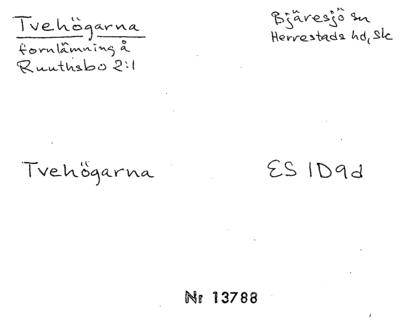 Tvehögarna
fornlämning å
Ruuthsbo 2:1
Bjäresjö sn
Herrestads hd, Sk
Tvehögarna
ES 1D9d
Nr 13788